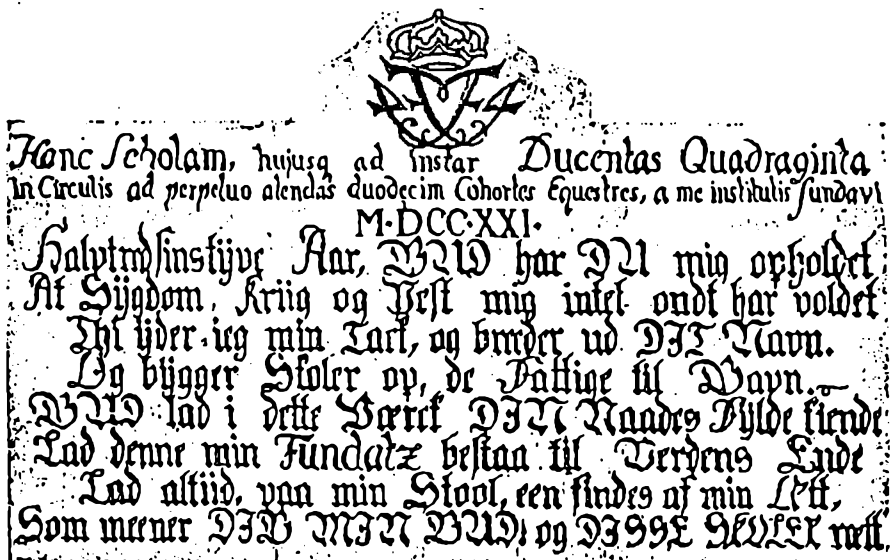 Hanc Scholam, hujusq ad instar Ducentas Quadraginta
In Circulis ad perpetuo alendas duodecim Cohortes Equestres, a me institutis fundavi
M·DCC·XXI·
Halvtredsinstÿve Aar, GUD har DU mig opholdet
At Sÿgdom, Kriig og Pest mig intet ondt har voldet
Thi ÿder ieg min Tack, og breeder ud DIT Navn.
Og bÿgger Skoler op, de Fattige til Gavn.
GUD lad i dette Værck DIN Naades Fÿlde kiende
Lad denne min Fundatz bestaa til Verdens Ende
Lad altiid, paa min Skool, een findes af min Ætt,
Som meener DIG MIN GUD! og DISSE SKOLER rætt.